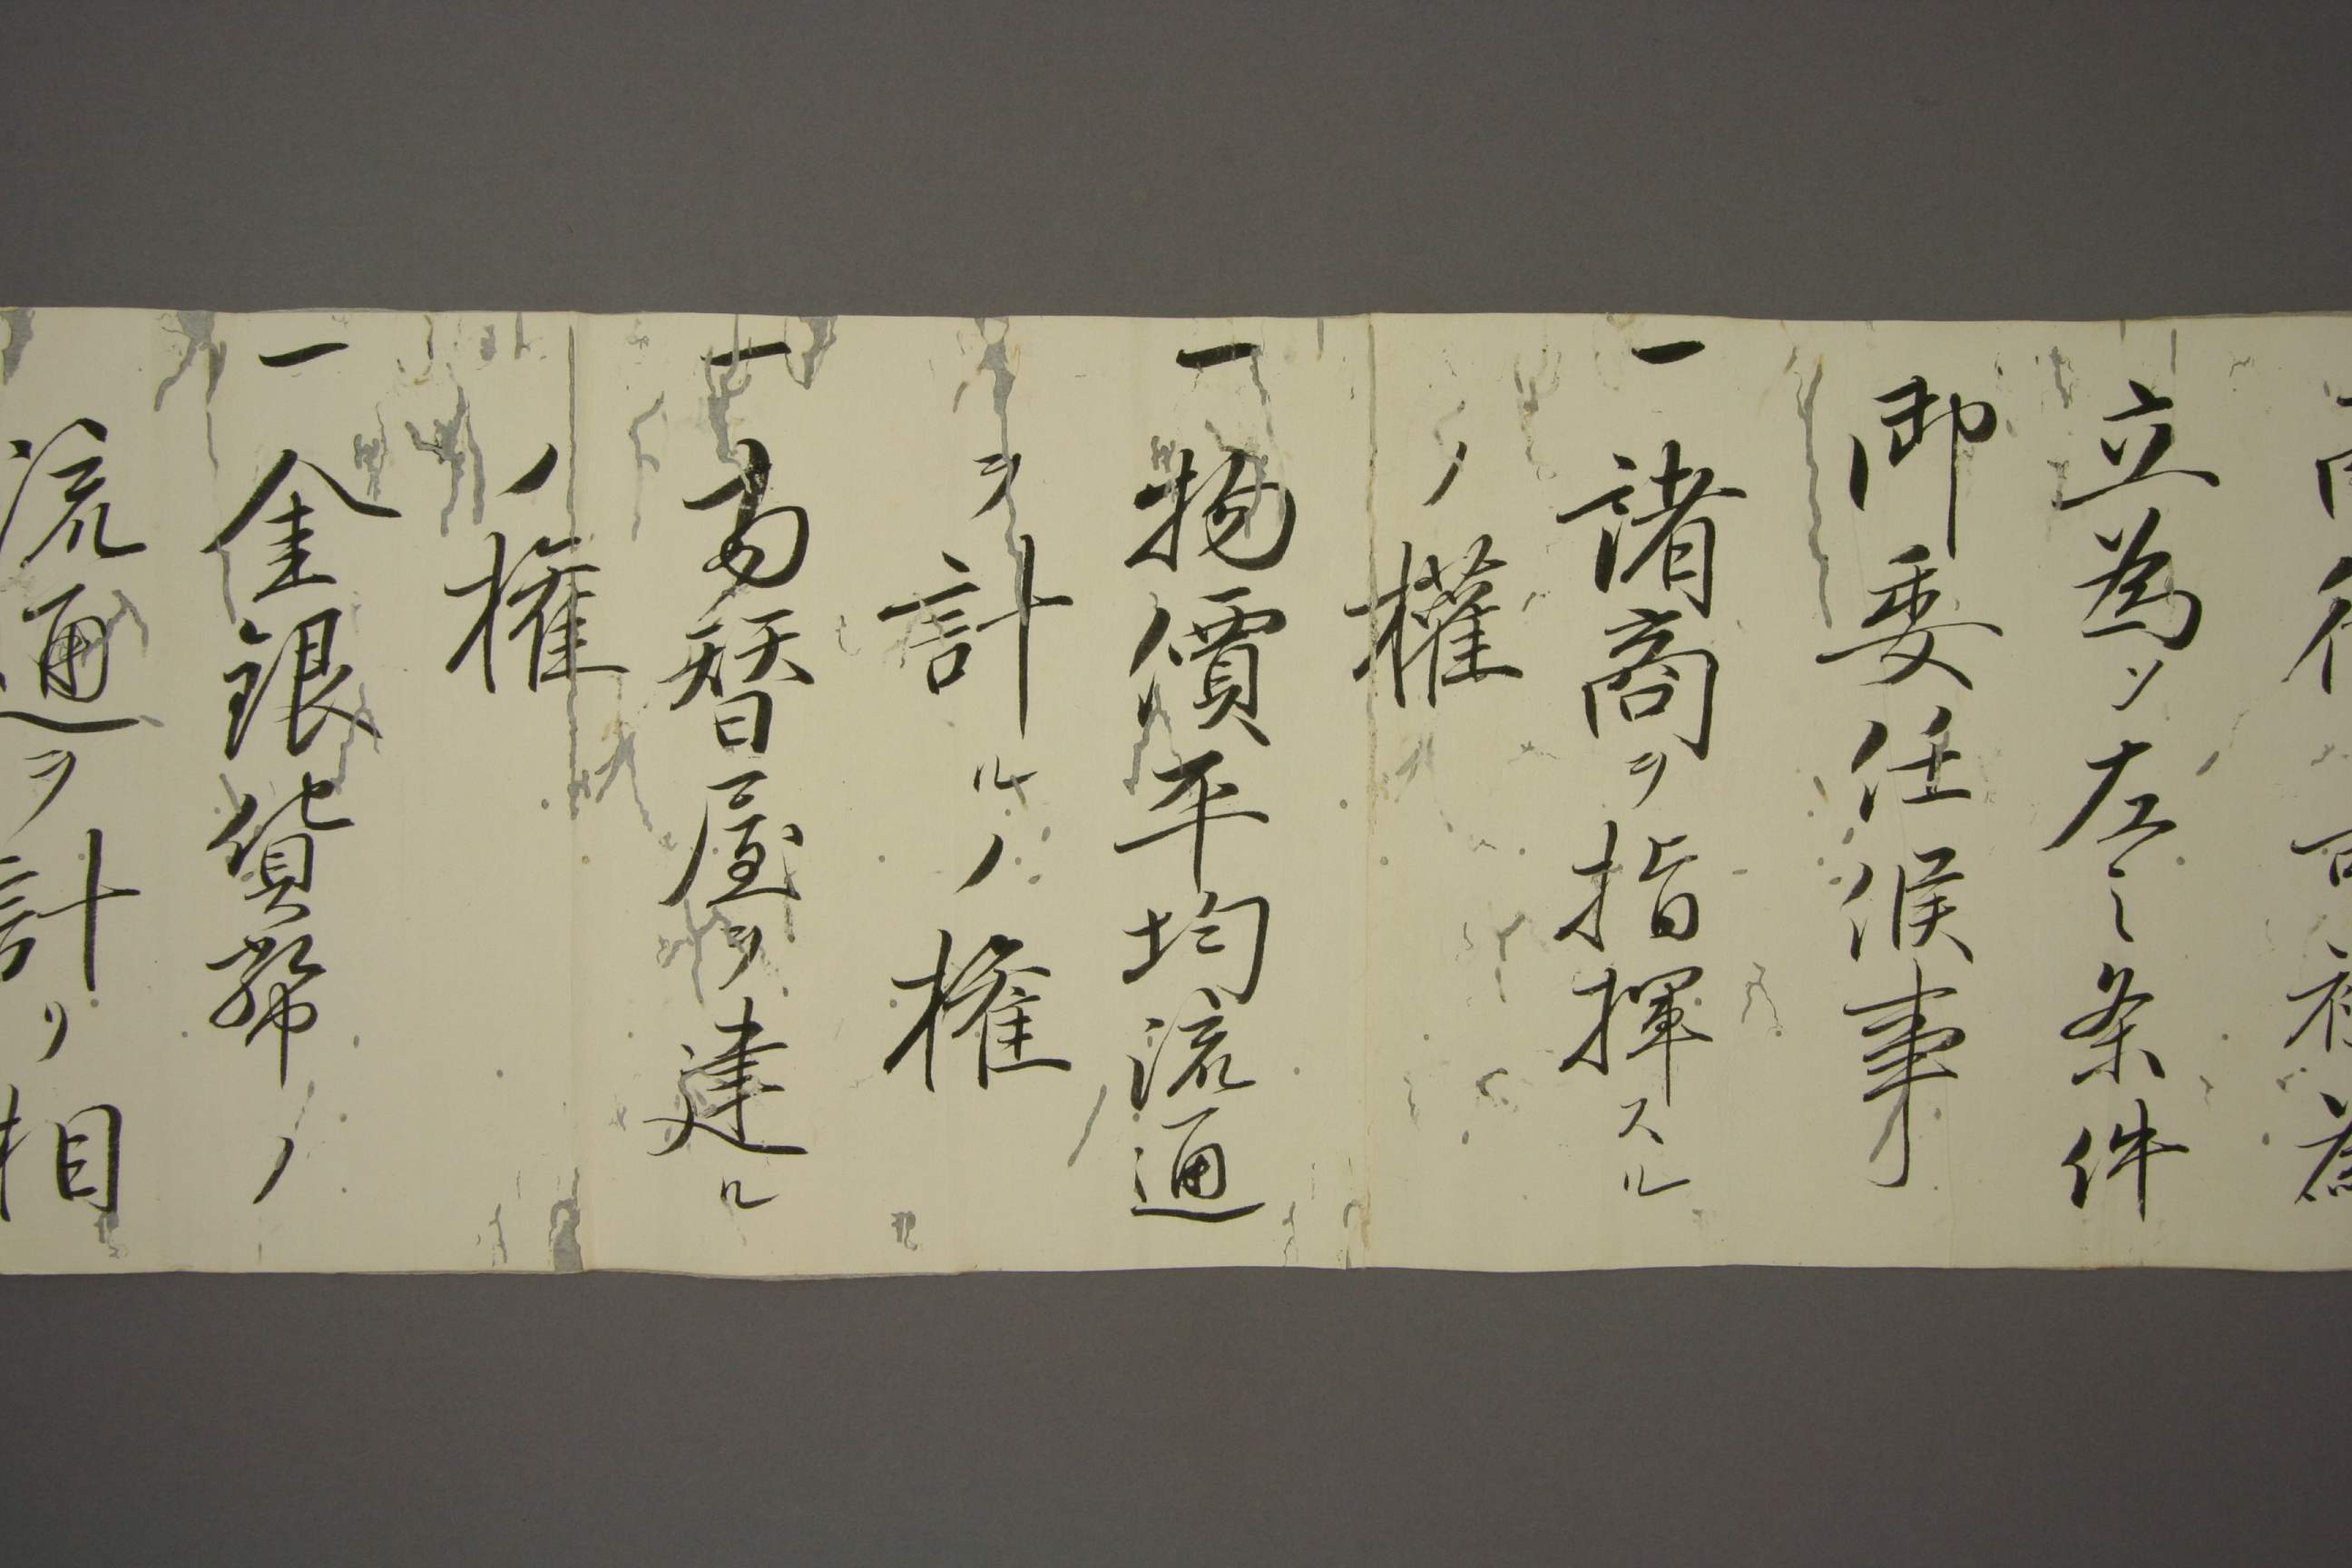 立為ソ左之条件
御委任候事
一諸商ヲ指揮スル
ノ權
一物價平均流通
ヲ計ルノ権
一為替屋ヲ建ル
ノ権
一金銀貨幣ノ
流通ヲ計リ相